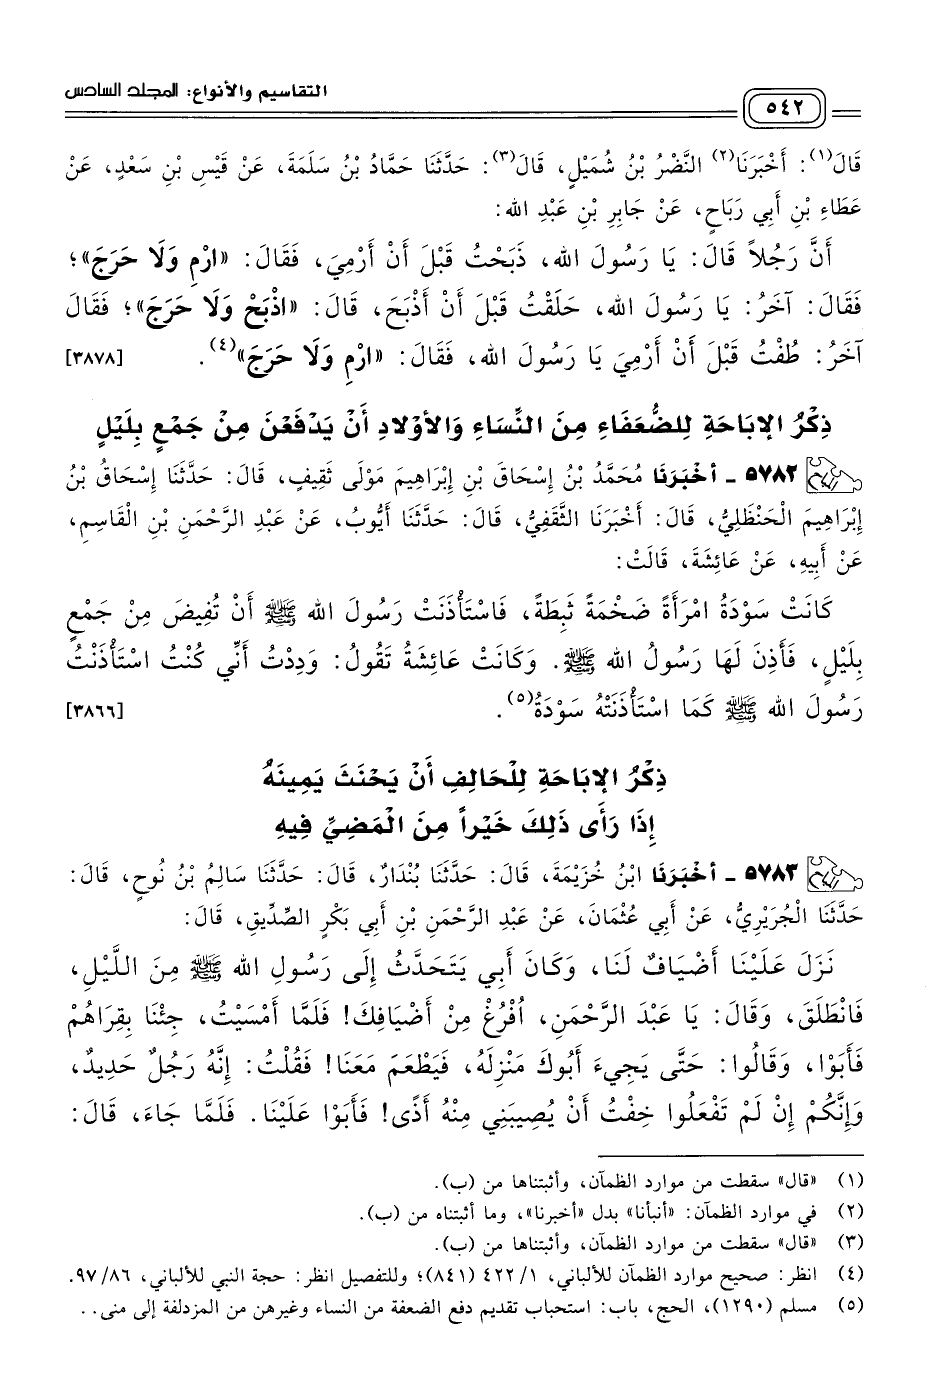 التقاسيم والأنواع: المجلد السادس
٥٤٢
قَالَ(١): أَخْبَرَنَا(٢) النَّضْرُ بْنُ شُمَيْلٍ، قَالَ(٣): حَدَّثَنَا حَمَّادُ بْنُ سَلَمَةَ، عَنْ قَيْسِ بْنِ سَعْدٍ، عَنْ
عَطَاءِ بْنِ أَبِي رَبَاحٍ، عَنْ جَابِرِ بْنِ عَبْدِ الله:
أَنَّ رَجُلاً قَالَ: يَا رَسُولَ الله، ذَبَحْتُ قَبْلَ أَنْ أَرْمِيَ، فَقَالَ: «ارْمِ وَلَا حَرَجَ»؛
فَقَالَ: آخَرُ: يَا رَسُولَ الله، حَلَقْتُ قَبْلَ أَنْ أَذْبَحَ، قَالَ: «اذْبَحْ وَلَا حَرَجَ»؛ فَقَالَ
آخَرُ: طُفْتُ قَبْلَ أَنْ أَرْمِيَ يَا رَسُولَ الله، فَقَالَ: «ارْمِ وَلَا حَرَجَ»(٤). [٣٨٧٨]
ذِكْرُ الإِبَاحَةِ لِلضُّعَفَاءِ مِنَ النِّسَاءِ وَالأَوْلَادِ أَنْ يَدْفَعْنَ مِنْ جَمْعٍ بِلَيْلٍ
٥٧٨٢ - أخْبَرَنَا مُحَمَّدُ بْنُ إِسْحَاقَ بْنِ إِبْرَاهِيمَ مَوْلَى ثَقِيفٍ، قَالَ: حَدَّثَنَا إِسْحَاقُ بْنُ
إِبْرَاهِيمَ الْحَنْظَلِيُّ، قَالَ: أَخْبَرَنَا الثَّقَفِيُّ، قَالَ: حَدَّثَنَا أَيُّوبُ، عَنْ عَبْدِ الرَّحْمَنِ بْنِ الْقَاسِمِ،
عَنْ أَبِيهِ، عَنْ عَائِشَةَ، قَالَتْ:
كَانَتْ سَوْدَةُ امْرَأَةً ضَخْمَةً ثَبِطَةً، فَاسْتَأْذَنَتْ رَسُولَ الله ﷺ أَنْ تُفِيضَ مِنْ جَمْعٍ
بِلَيْلٍ، فَأَذِنَ لَهَا رَسُولُ الله ﷺ. وَكَانَتْ عَائِشَةُ تَقُولُ: وَدِدْتُ أَنِّي كُنْتُ اسْتَأْذَنْتُ
رَسُولَ الله ﷺ كَمَا اسْتَأْذَنَتْهُ سَوْدَةُ(٥). [٣٨٦٦]
ذِكْرُ الإِبَاحَةِ لِلْحَالِفِ أَنْ يَحْنَثَ يَمِينَهُ
إِذَا رَأَى ذَلِكَ خَيْراً مِنَ الْمَضِيِّ فِيهِ
٥٧٨٣ - أخْبَرَنَا ابْنُ خُزَيْمَةَ، قَالَ: حَدَّثَنَا بُنْدَارٌ، قَالَ: حَدَّثَنَا سَالِمُ بْنُ نُوحٍ، قَالَ:
حَدَّثَنَا الْجُرَيْرِيُّ، عَنْ أَبِي عُثْمَانَ، عَنْ عَبْدِ الرَّحْمَنِ بْنِ أَبِي بَكْرٍ الصِّدِّيقِ، قَالَ:
نَزَلَ عَلَيْنَا أَضْيَافٌ لَنَا، وَكَانَ أَبِي يَتَحَدَّثُ إِلَى رَسُولِ الله ﷺ مِنَ اللَّيْلِ،
فَانْطَلَقَ، وَقَالَ: يَا عَبْدَ الرَّحْمَنِ، اُفْرُغْ مِنْ أَضْيَافِكَ! فَلَمَّا أَمْسَيْتُ، جِئْنَا بِقِرَاهُمْ
فَأَبَوْا، وَقَالُوا: حَتَّى يَجِيءَ أَبُوكَ مَنْزِلَهُ، فَيَطْعَمَ مَعَنَا! فَقُلْتُ: إِنَّهُ رَجُلٌ حَدِيدٌ،
وَإِنَّكُمْ إِنْ لَمْ تَفْعَلُوا خِفْتُ أَنْ يُصِيبَنِي مِنْهُ أَذًى! فَأَبَوْا عَلَيْنَا. فَلَمَّا جَاءَ، قَالَ:
(١) «قال» سقطت من موارد الظمآن، وأثبتناها من (ب).
(٢) في موارد الظمآن: «أنبأنا» بدل «أخبرنا»، وما أثبتناه من (ب).
(٣) «قال» سقطت من موارد الظمآن، وأثبتناها من (ب).
(٤) انظر: صحيح موارد الظمآن للألباني، ١/ ٤٢٢ (٨٤١)؛ وللتفصيل انظر: حجة النبي للألباني، ٨٦/ ٩٧.
(٥) مسلم (١٢٩٠)، الحج، باب: استحباب تقديم دفع الضعفة من النساء وغيرهن من المزدلفة إلى منى..